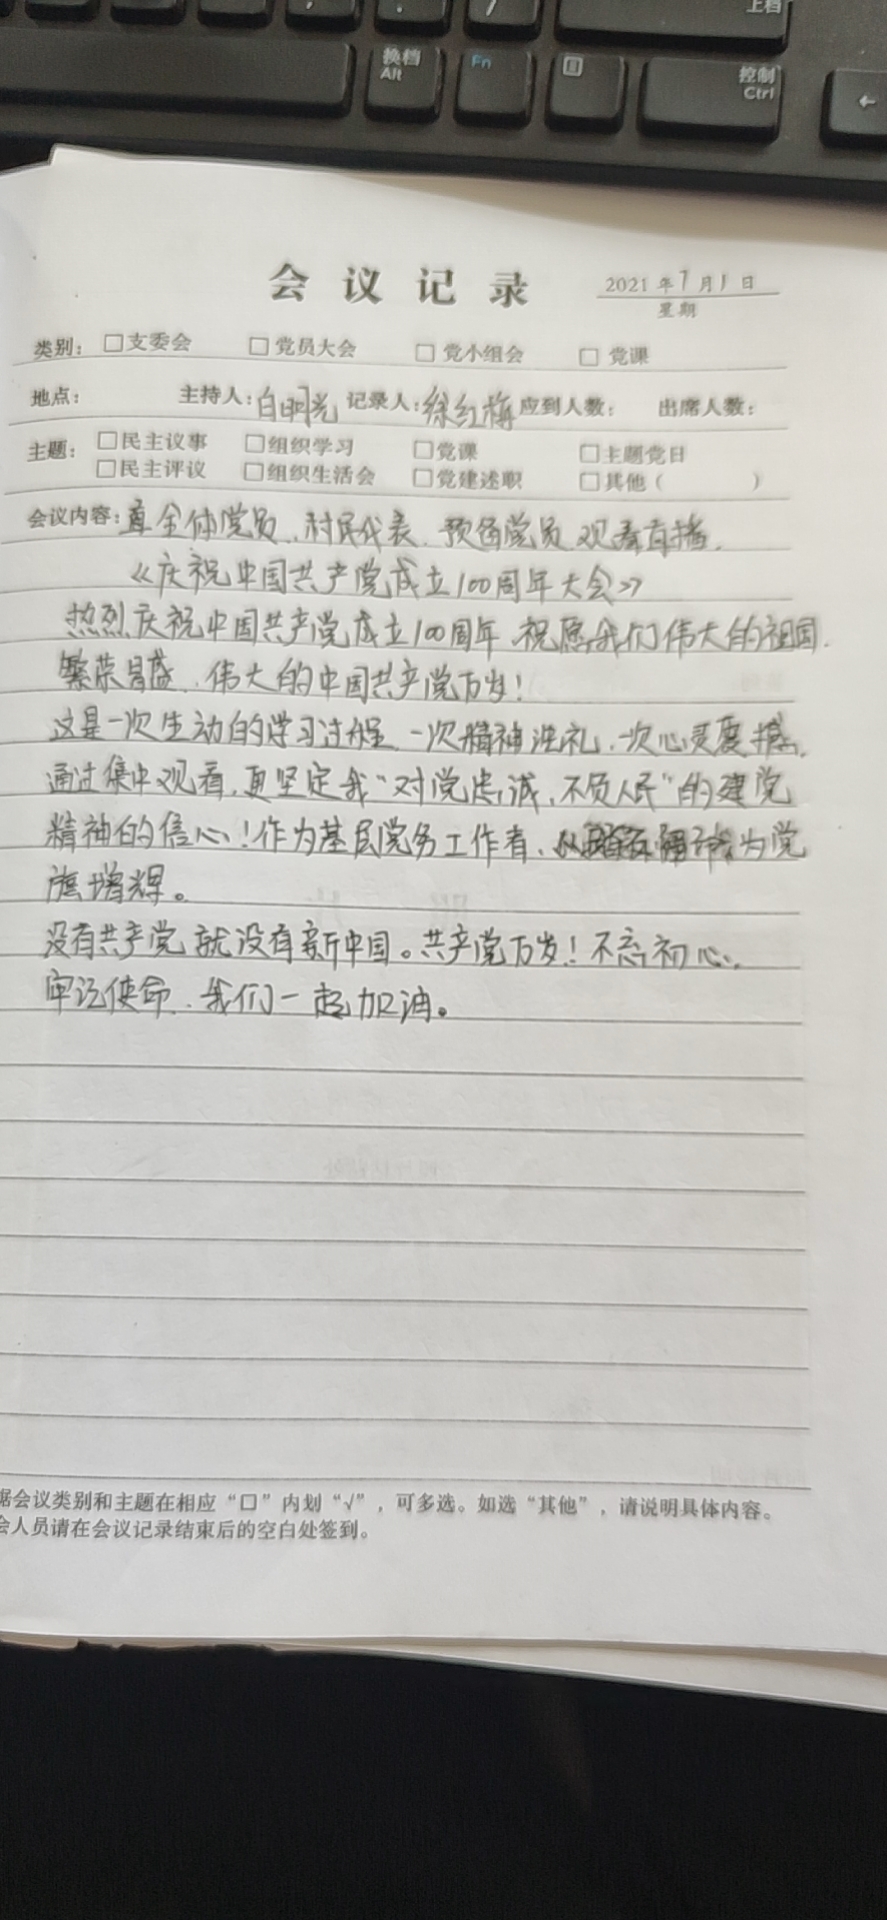 上档
换档
Alt
Fn
控制
Ctrl
←
会议记录
2021年7月1日
星期
类别：□支委会 □党员大会 □党小组会 □党课
地点： 主持人：白明光 记录人：徐红梅 应到人数： 出席人数：
主题：□民主议事 □组织学习 □党课 □主题党日
□民主评议 □组织生活会 □党建述职 □其他（ ）
会议内容：全体党员、村民代表、预备党员观看直播。
《庆祝中国共产党成立100周年大会》
热烈庆祝中国共产党成立100周年、祝愿我们伟大的祖国.
繁荣昌盛、伟大的中国共产党万岁！
这是一次生动的学习过程、一次精神洗礼、一次心灵震撼、
通过集中观看，更坚定我“对党忠诚、不负人民”的建党
精神的信心！作为基层党务工作者、为党
旗增辉。
没有共产党就没有新中国。共产党万岁！不忘初心、
牢记使命、我们一起加油。
据会议类别和主题在相应“口”内划“√”，可多选。如选“其他”，请说明具体内容。
会人员请在会议记录结束后的空白处签到。